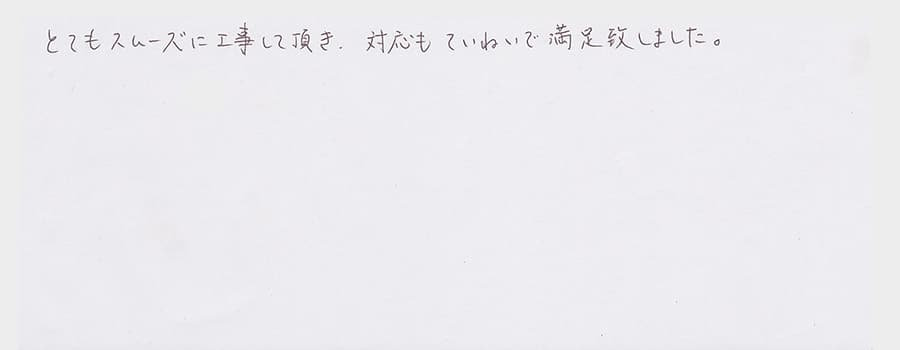 とてもスムーズに工事して頂き、対応もていねいで満足致しました。